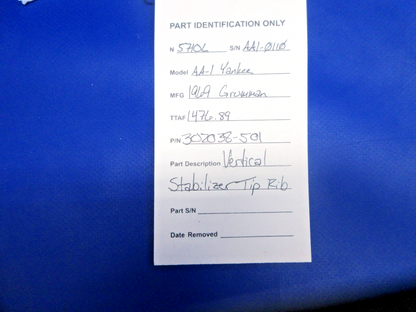 PART IDENTIFICATION ONLY
N 5740L S/N AA1-0110
Model AA-1 Yankee
MFG 1969 Grumman
TTAF 1476.89
P/N 302038-501
Part Description Vertical
Stabilizer Tip Rib
Part S/N
Date Removed